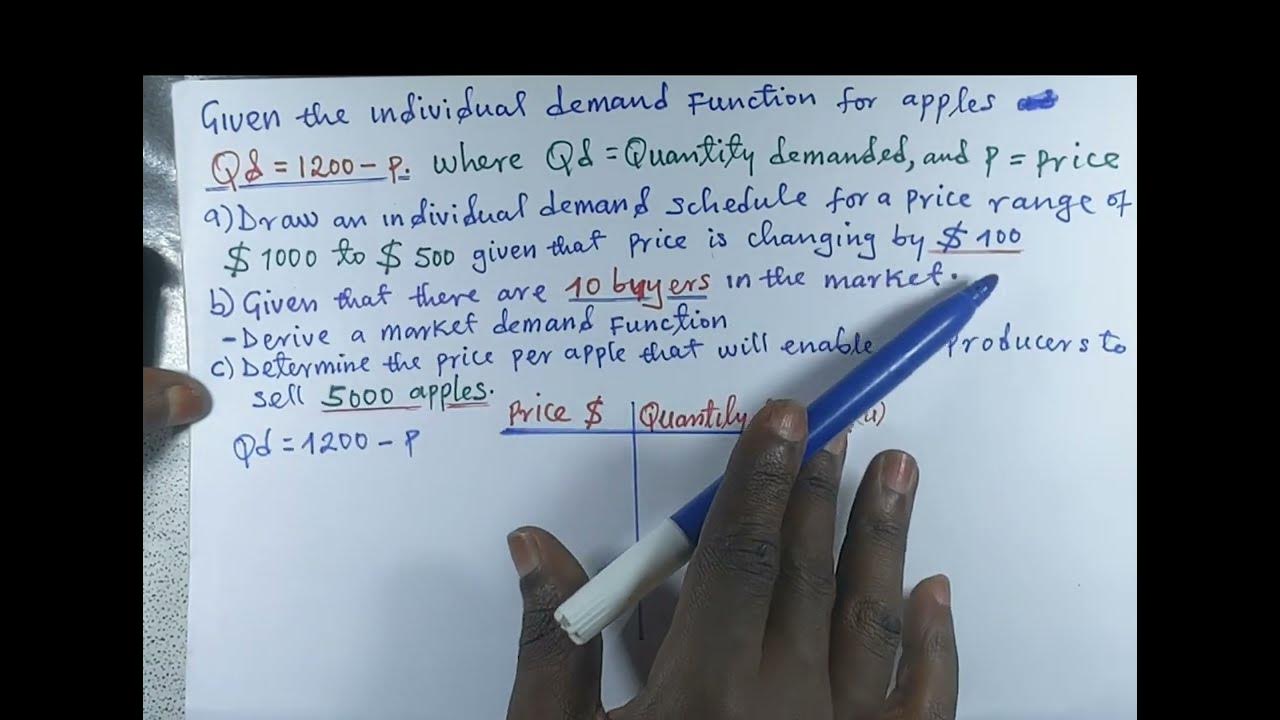 Given the individual demand Function for apples
Qd = 1200 - P. where Qd = Quantity demanded, and P = Price
a) Draw an individual demand schedule for a price range of
$ 1000 to $ 500 given that price is changing by $ 100
b) Given that there are 10 buyers in the market.
- Derive a market demand Function
c) Determine the price per apple that will enable producers to
sell 5000 apples.
Price $ Quantity
Qd = 1200 - P